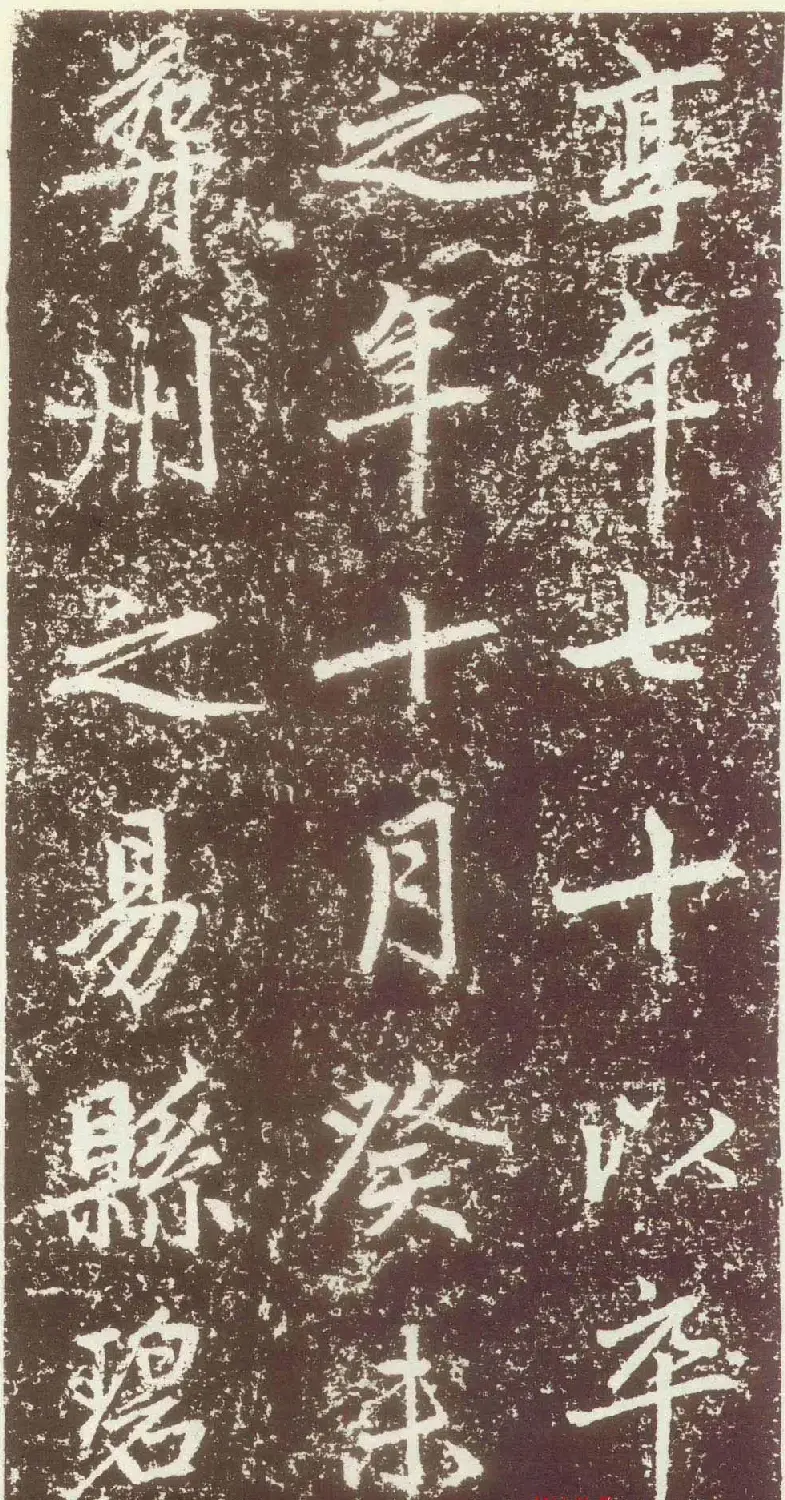 享年七十以卒
之年十月癸未
葬州之易縣碧